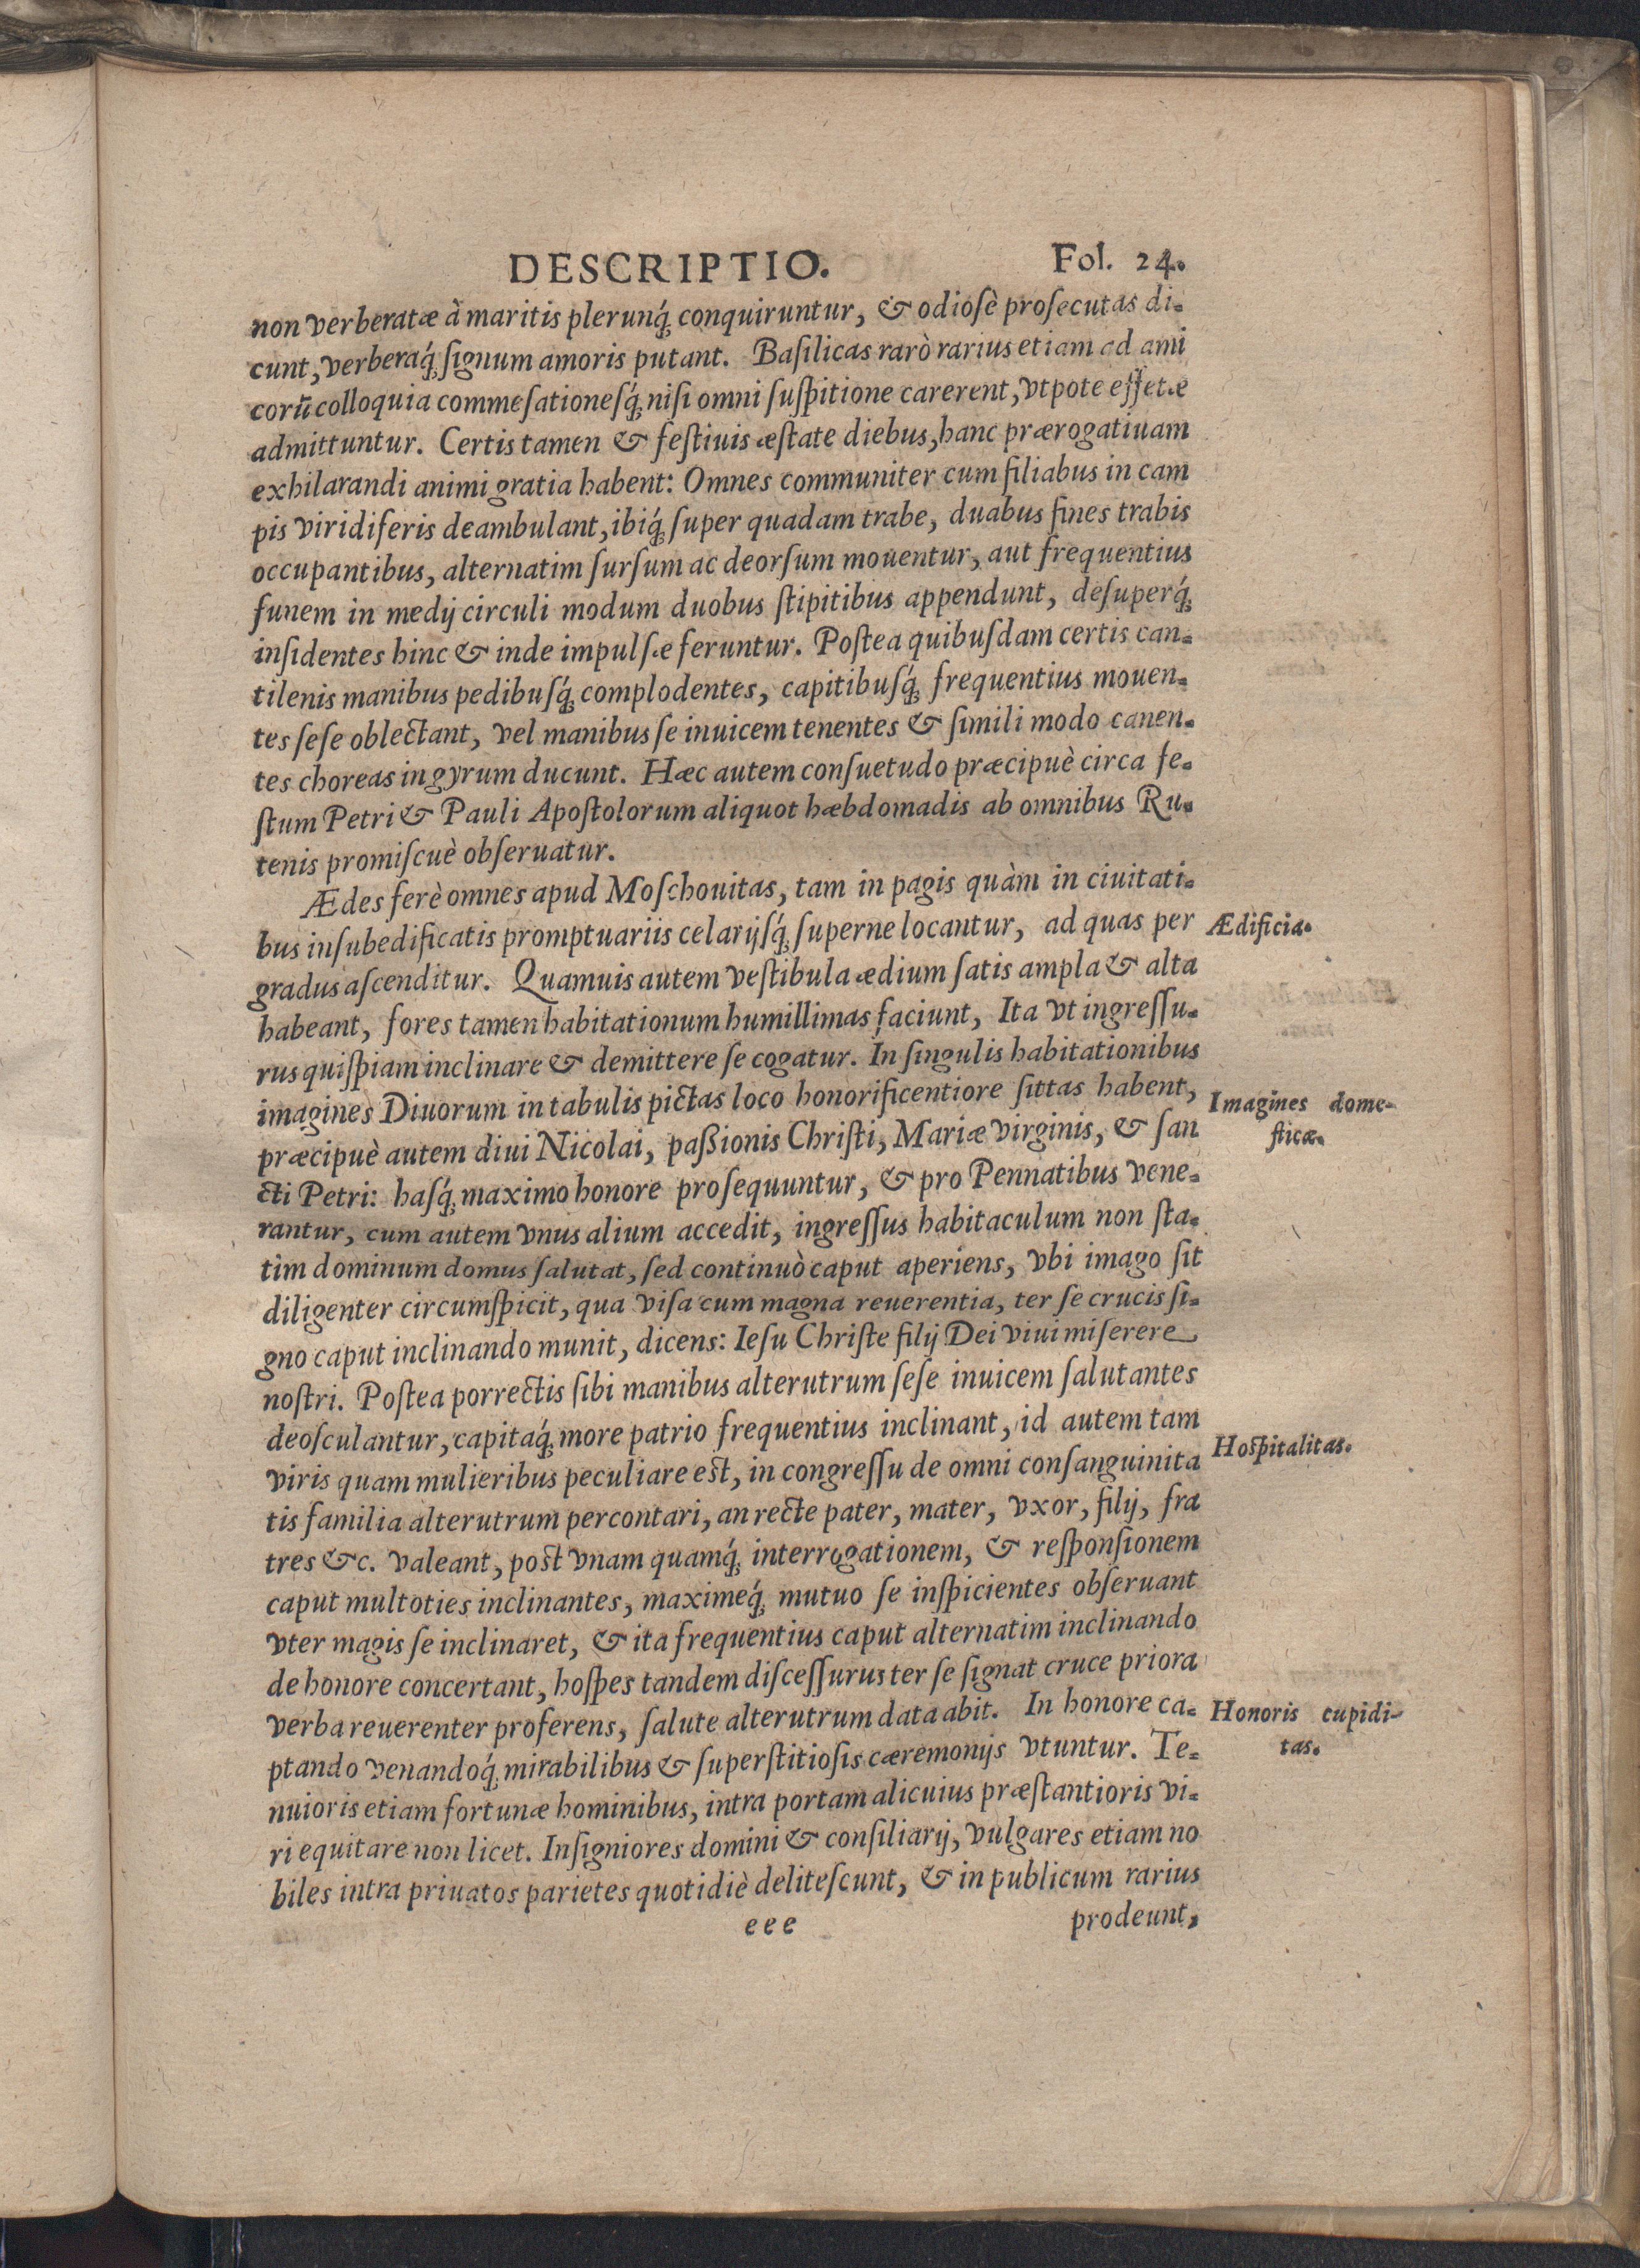 DESCRIPTIO. Fol. 24.
non verberatæ à maritis plerunq́; conquiruntur, & odiosè prosecutas di-
cunt, verberaq́; signum amoris putant. Basilicas rarò rarius etiam ad ami
corũ colloquia commesationesq́; nisi omni suspitione carerent, vtpote effetæ
admittuntur. Certis tamen & festiuis æstate diebus, hanc prærogatiuam
exhilarandi animi gratia habent: Omnes communiter cum filiabus in cam
pis viridiferis deambulant, ibiq́; super quadam trabe, duabus fines trabis
occupantibus, alternatim sursum ac deorsum mouentur, aut frequentius
funem in medij circuli modum duobus stipitibus appendunt, desuperq́;
insidentes hinc & inde impulsæ feruntur. Postea quibusdam certis can-
tilenis manibus pedibusq́; complodentes, capitibusq́; frequentius mouen-
tes sese oblectant, vel manibus se inuicem tenentes & simili modo canen-
tes choreas in gyrum ducunt. Hæc autem consuetudo præcipuè circa fe-
stum Petri & Pauli Apostolorum aliquot hæbdomadis ab omnibus Ru-
tenis promiscuè obseruatur.
Ædes ferè omnes apud Moschouitas, tam in pagis quàm in ciuitati-
bus in subedificatis promptuariis celarijsq́; superne locantur, ad quas per
Ædificia.
gradus ascenditur. Quamuis autem vestibula ædium satis ampla & alta
habeant, fores tamen habitationum humillimas faciunt, Ita vt ingressu-
rus quispiam inclinare & demittere se cogatur. In singulis habitationibus
imagines Diuorum in tabulis pictas loco honorificentiore sittas habent,
Imagines dome-
sticæ.
præcipuè autem diui Nicolai, paßionis Christi, Mariæ virginis, & san
cti Petri: hasq́; maximo honore prosequuntur, & pro Pennatibus vene-
rantur, cum autem vnus alium accedit, ingressus habitaculum non sta-
tim dominum domus salutat, sed continuò caput aperiens, vbi imago sit
diligenter circumspicit, qua visa cum magna reuerentia, ter se crucis si-
gno caput inclinando munit, dicens: Iesu Christe filij Dei viui miserere
nostri. Postea porrectis sibi manibus alterutrum sese inuicem salutantes
deosculantur, capitaq́; more patrio frequentius inclinant, id autem tam
Hospitalitas.
viris quam mulieribus peculiare est, in congressu de omni consanguinita
tis familia alterutrum percontari, an recte pater, mater, vxor, filij, fra
tres &c. valeant, post vnam quamq́; interrogationem, & responsionem
caput multoties inclinantes, maximeq́; mutuo se inspicientes obseruant
vter magis se inclinaret, & ita frequentius caput alternatim inclinando
de honore concertant, hospes tandem discessurus ter se signat cruce priora
verba reuerenter proferens, salute alterutrum data abit. In honore ca-
Honoris cupidi-
tas.
ptando venandoq́; mirabilibus & superstitiosis cæremonijs vtuntur. Te-
nuioris etiam fortunæ hominibus, intra portam alicuius præstantioris vi-
ri equitare non licet. Insigniores domini & consiliarij, vulgares etiam no
biles intra priuatos parietes quotidiè delitescunt, & in publicum rarius
eee prodeunt,